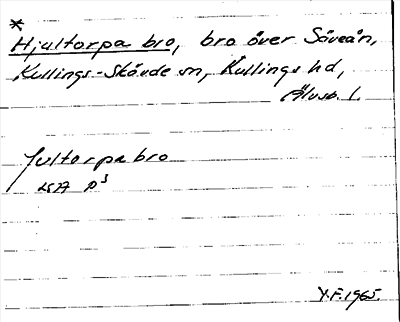 *
Hjultorpa bro, bro över Säveån,
Kullings-Skövde sn, Kullings hd,
Älvsb. l.
Jultorpabro
LSA P³
Y.F. 1965.